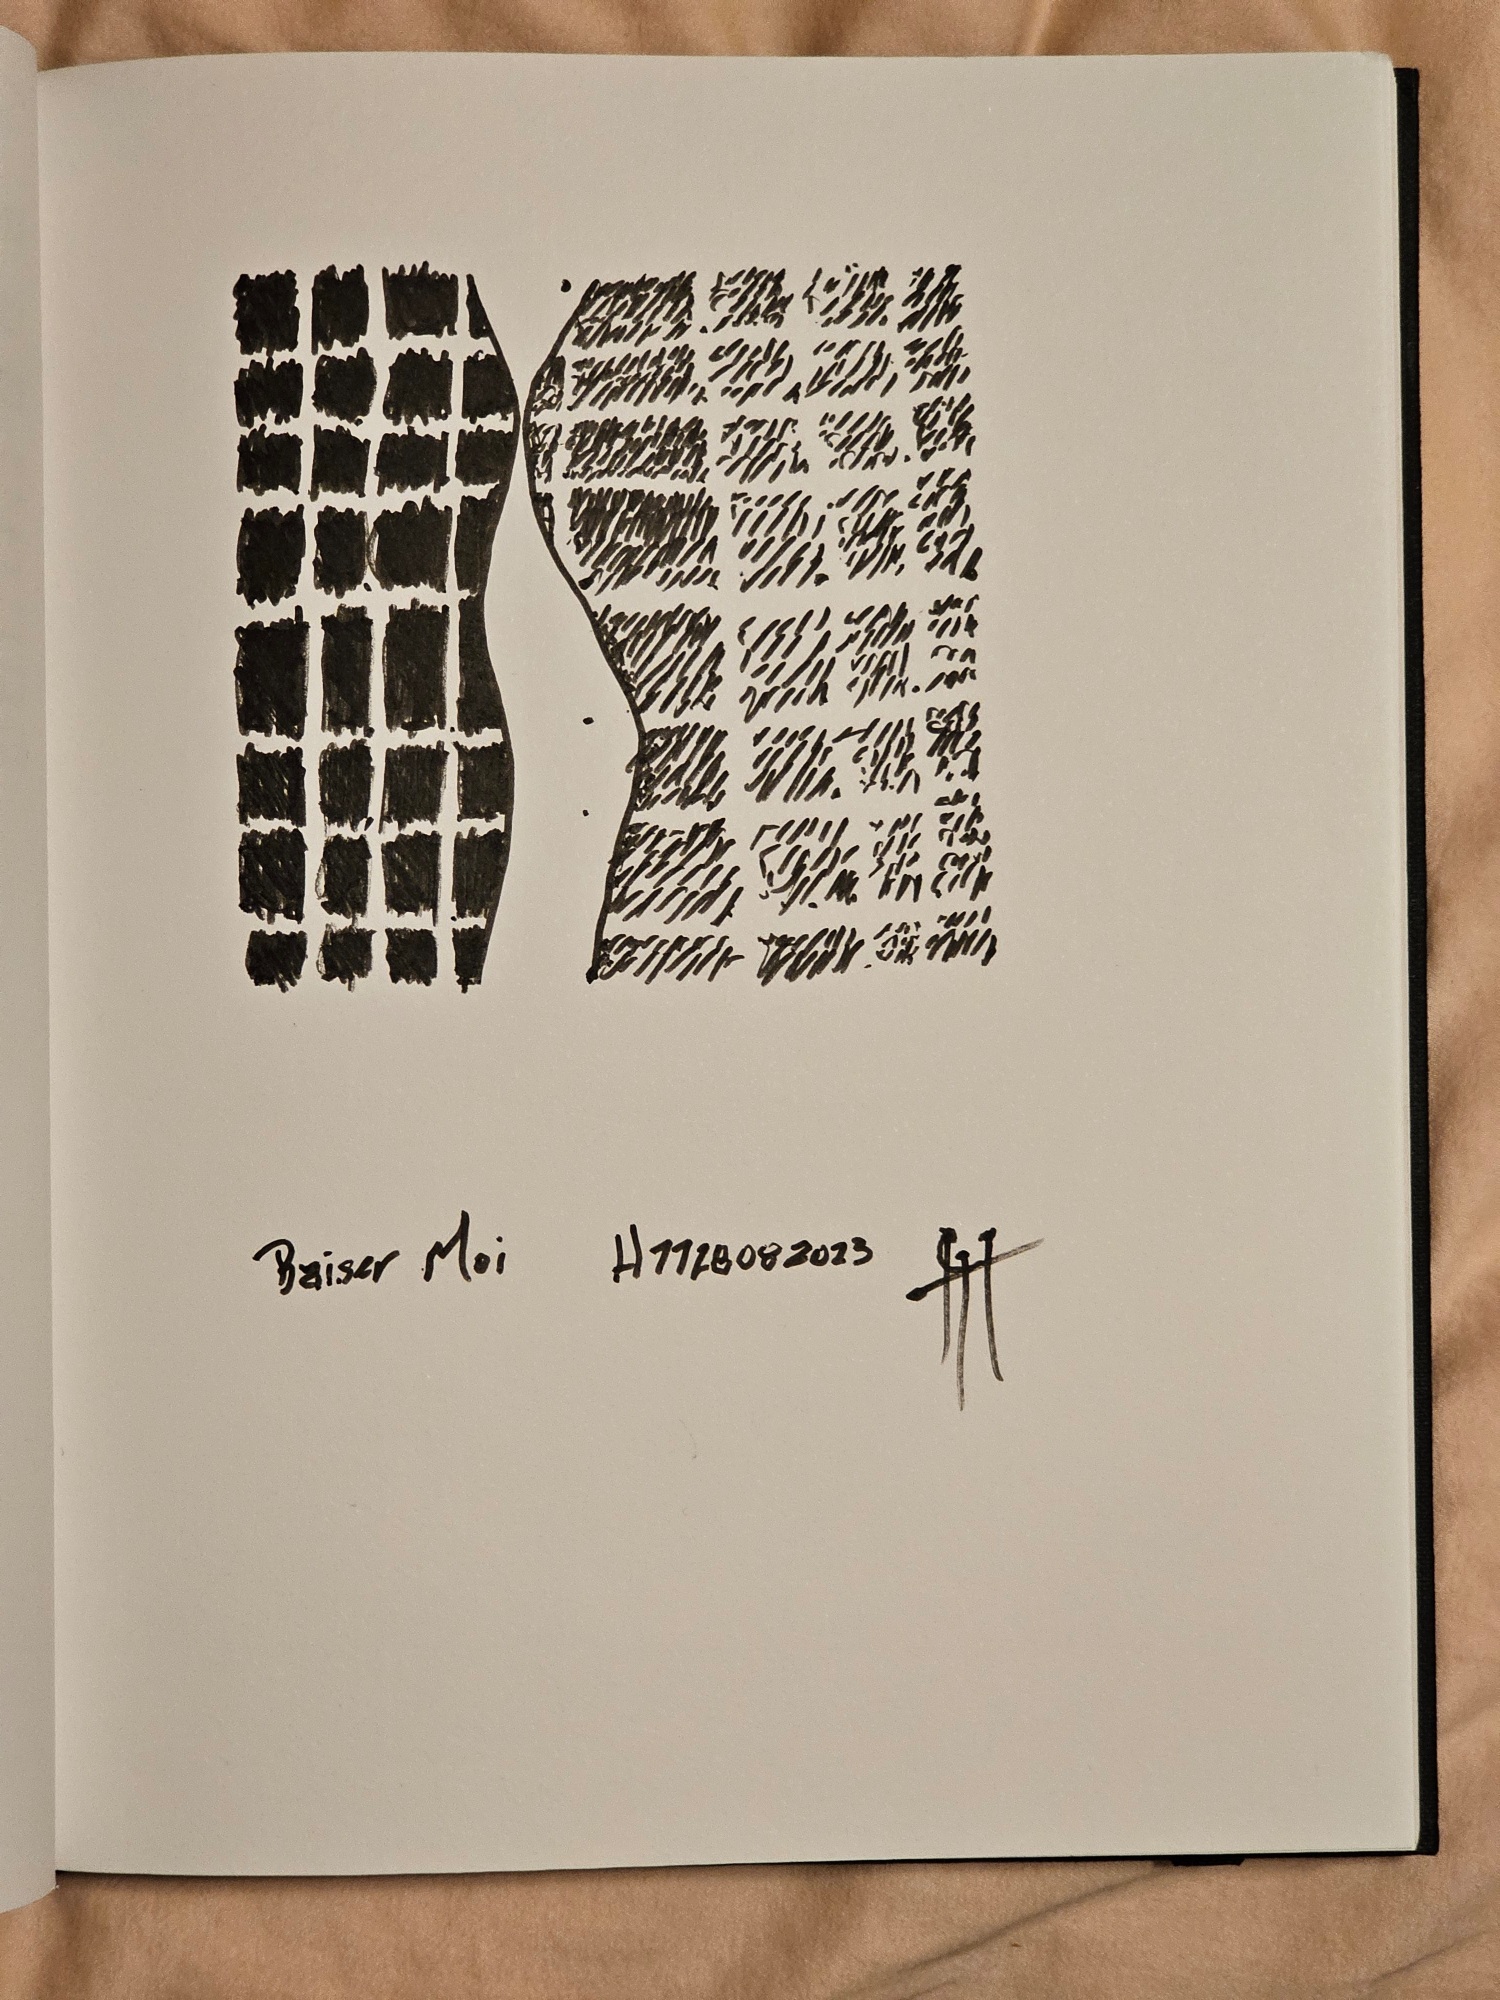 Baiser Moi H1128082023